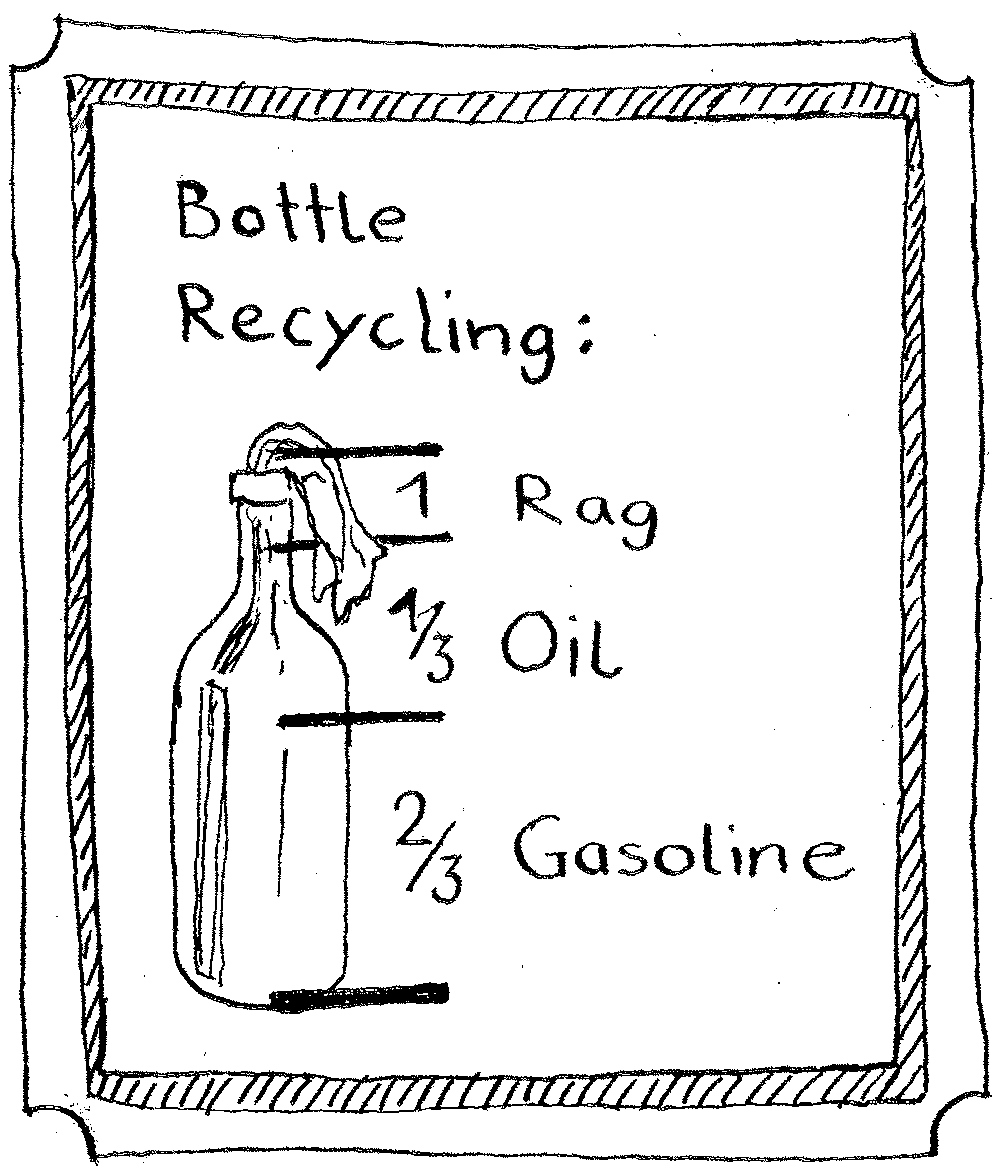 Bottle
Recycling:
1 Rag
1/3 Oil
2/3 Gasoline